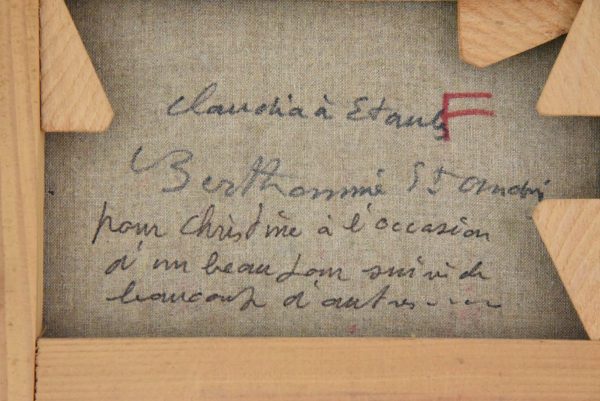 Claudia à Etaules F
Berthommé St André
pour Christine à l'occasion
d'un beau jour suivi de
beaucoup d'autres----